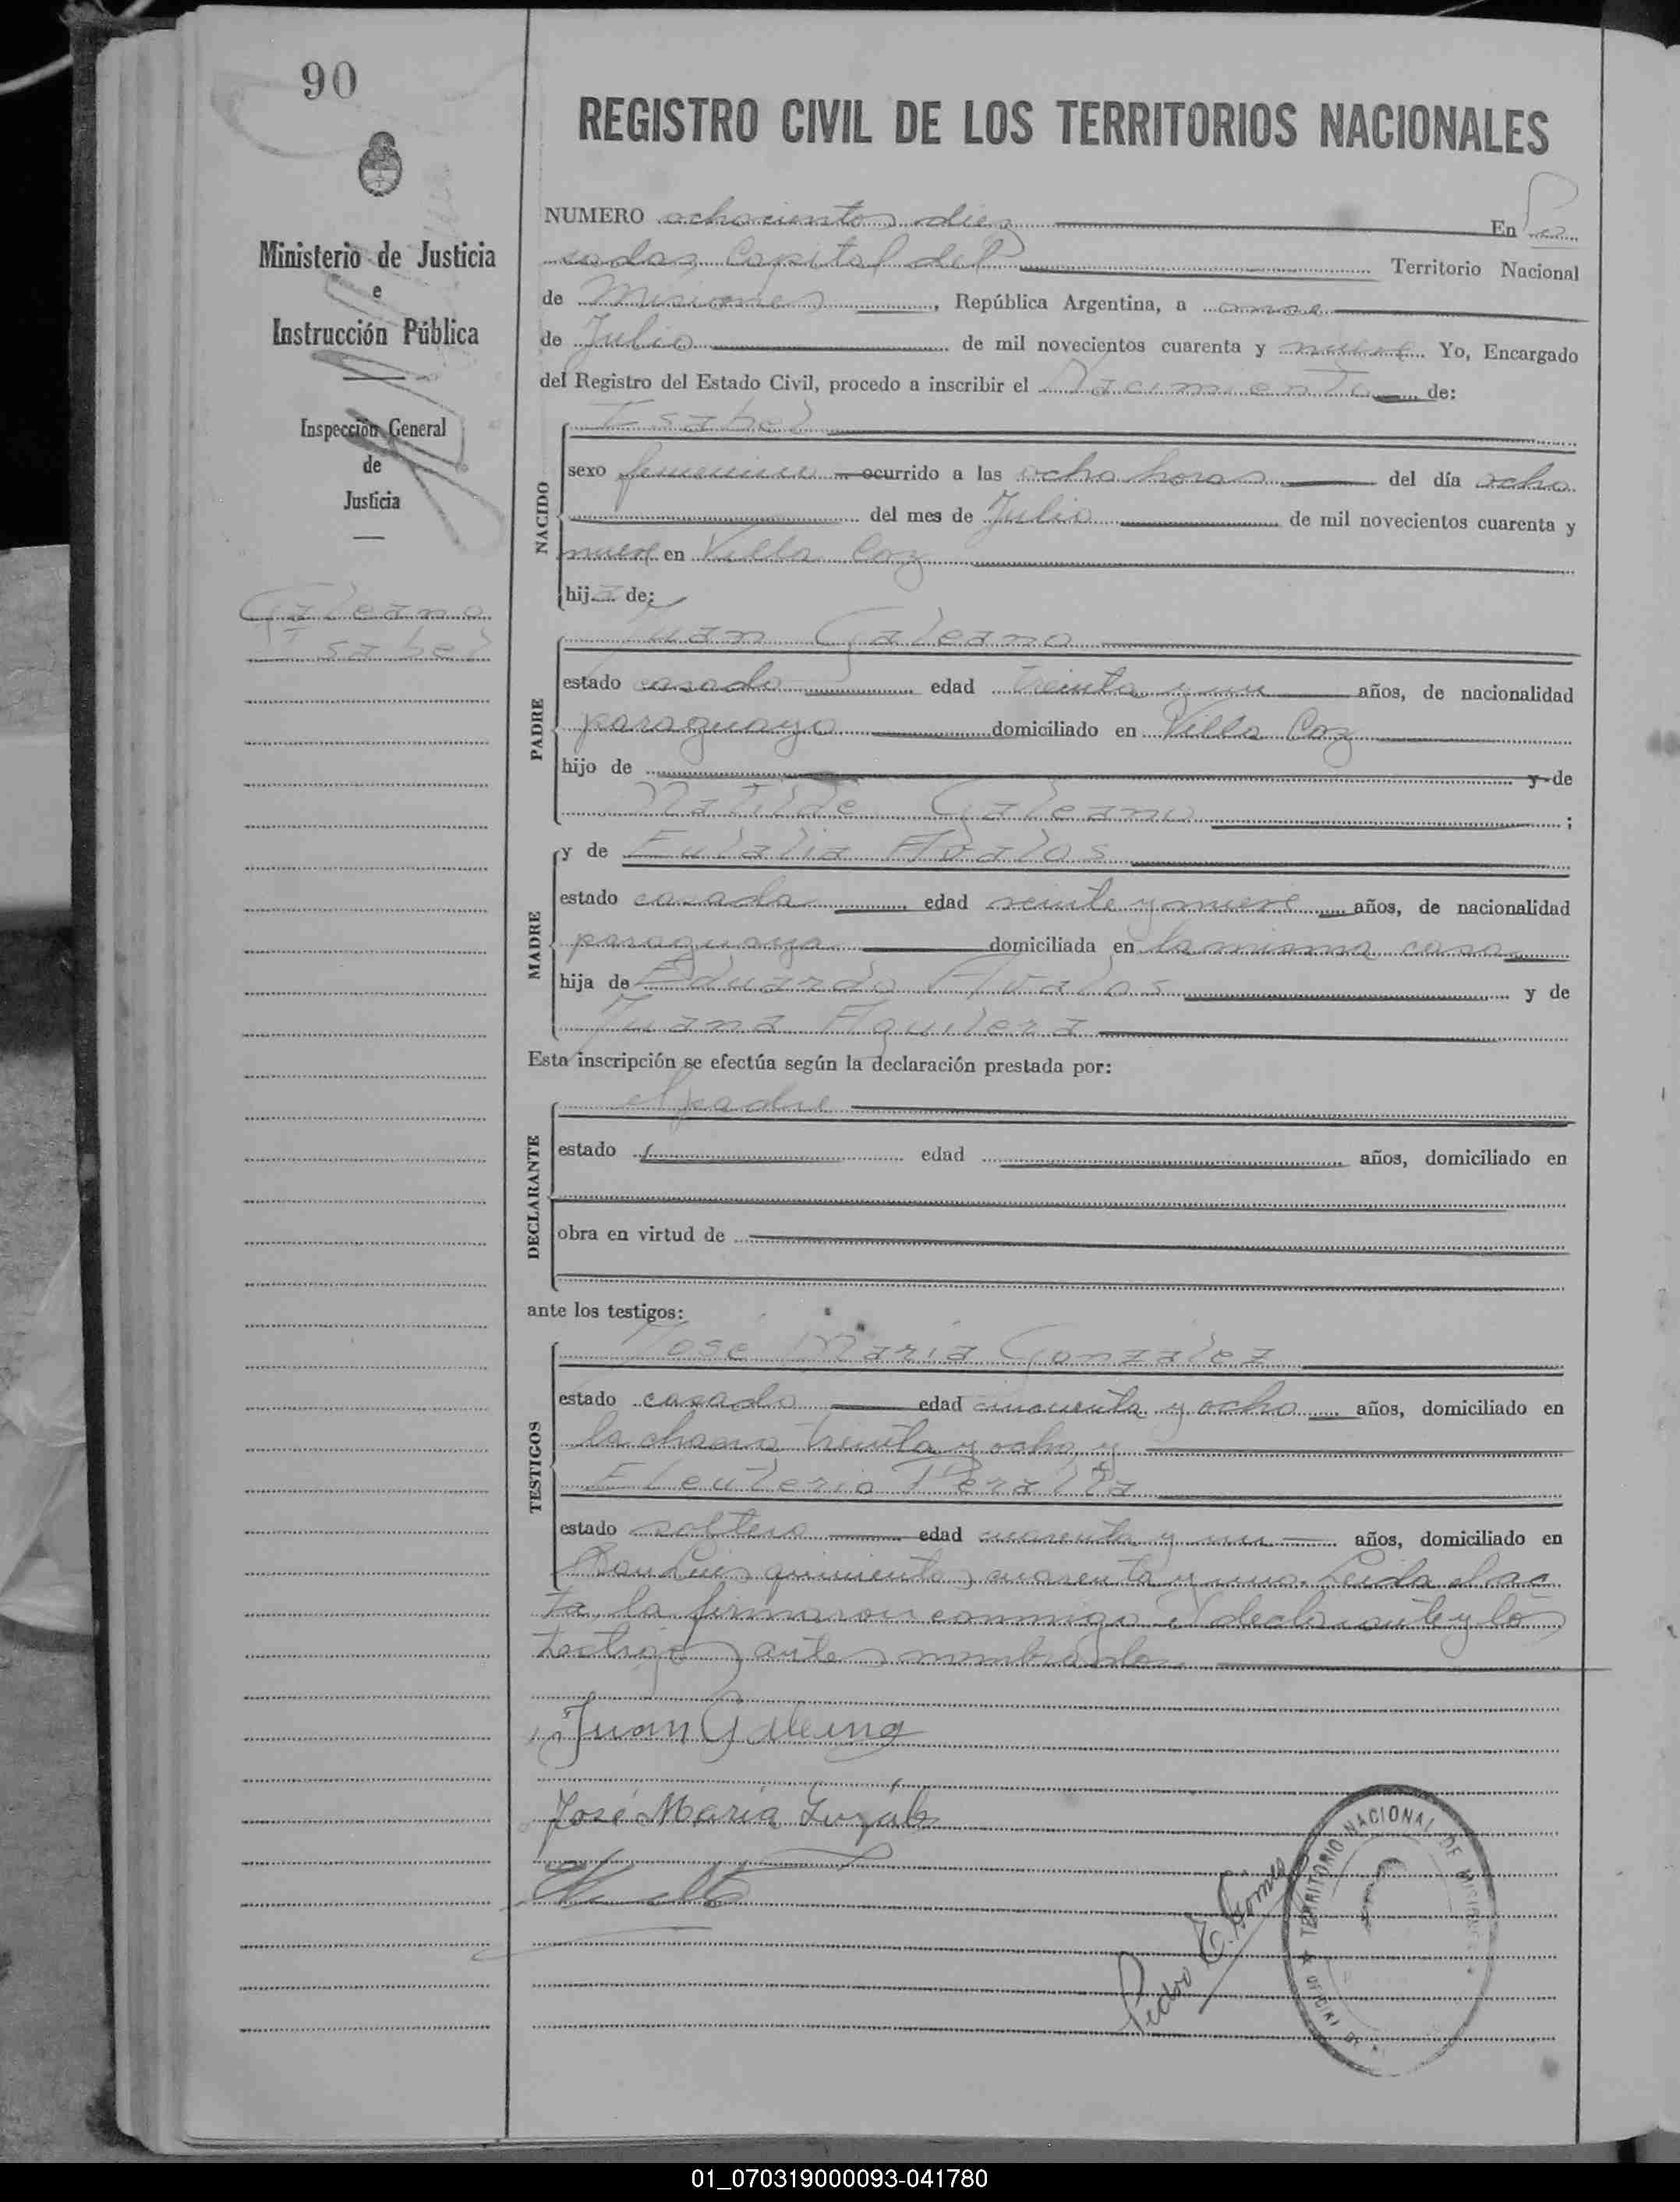 90
Ministerio de Justicia
e
Instrucción Pública
Inspección General
de
Justicia
Galeano
Isabel
REGISTRO CIVIL DE LOS TERRITORIOS NACIONALES
NUMERO ochocientos diez En Po
sadas Capital del Territorio Nacional
de Misiones, República Argentina, a once
de Julio de mil novecientos cuarenta y nueve Yo, Encargado
del Registro del Estado Civil, procedo a inscribir el Nacimiento de:
NACIDO
Isabel
sexo femenino ocurrido a las ocho horas del día ocho
del mes de Julio de mil novecientos cuarenta y
nueve en Villa Coz
hija de:
PADRE
Juan Galeano
estado casado edad treinta y un años, de nacionalidad
paraguaya domiciliado en Villa Coz
hijo de y de
Matilde Galeano ;
MADRE
y de Eulalia Avalos
estado casada edad veinte y nueve años, de nacionalidad
paraguaya domiciliada en la misma casa
hija de Eduardo Avalos y de
Juana Aguilera
Esta inscripción se efectúa según la declaración prestada por:
DECLARANTE
el padre
estado edad años, domiciliado en
obra en virtud de
ante los testigos:
TESTIGOS
José María Gonzalez
estado casado edad cincuenta y ocho años, domiciliado en
la chacra treinta y ocho y
Eleuterio Peralta
estado soltero edad cuarenta y un años, domiciliado en
San Luis quinientos cuarenta y uno. Leida el ac
ta, la firmaron conmigo el declarante y los
testigos antes nombrados.
Juan Galeano
José María
Pedro E. Gómes
TERRITORIO NACIONAL DE MISIONES
OFICINA DE
01_070319000093-041780